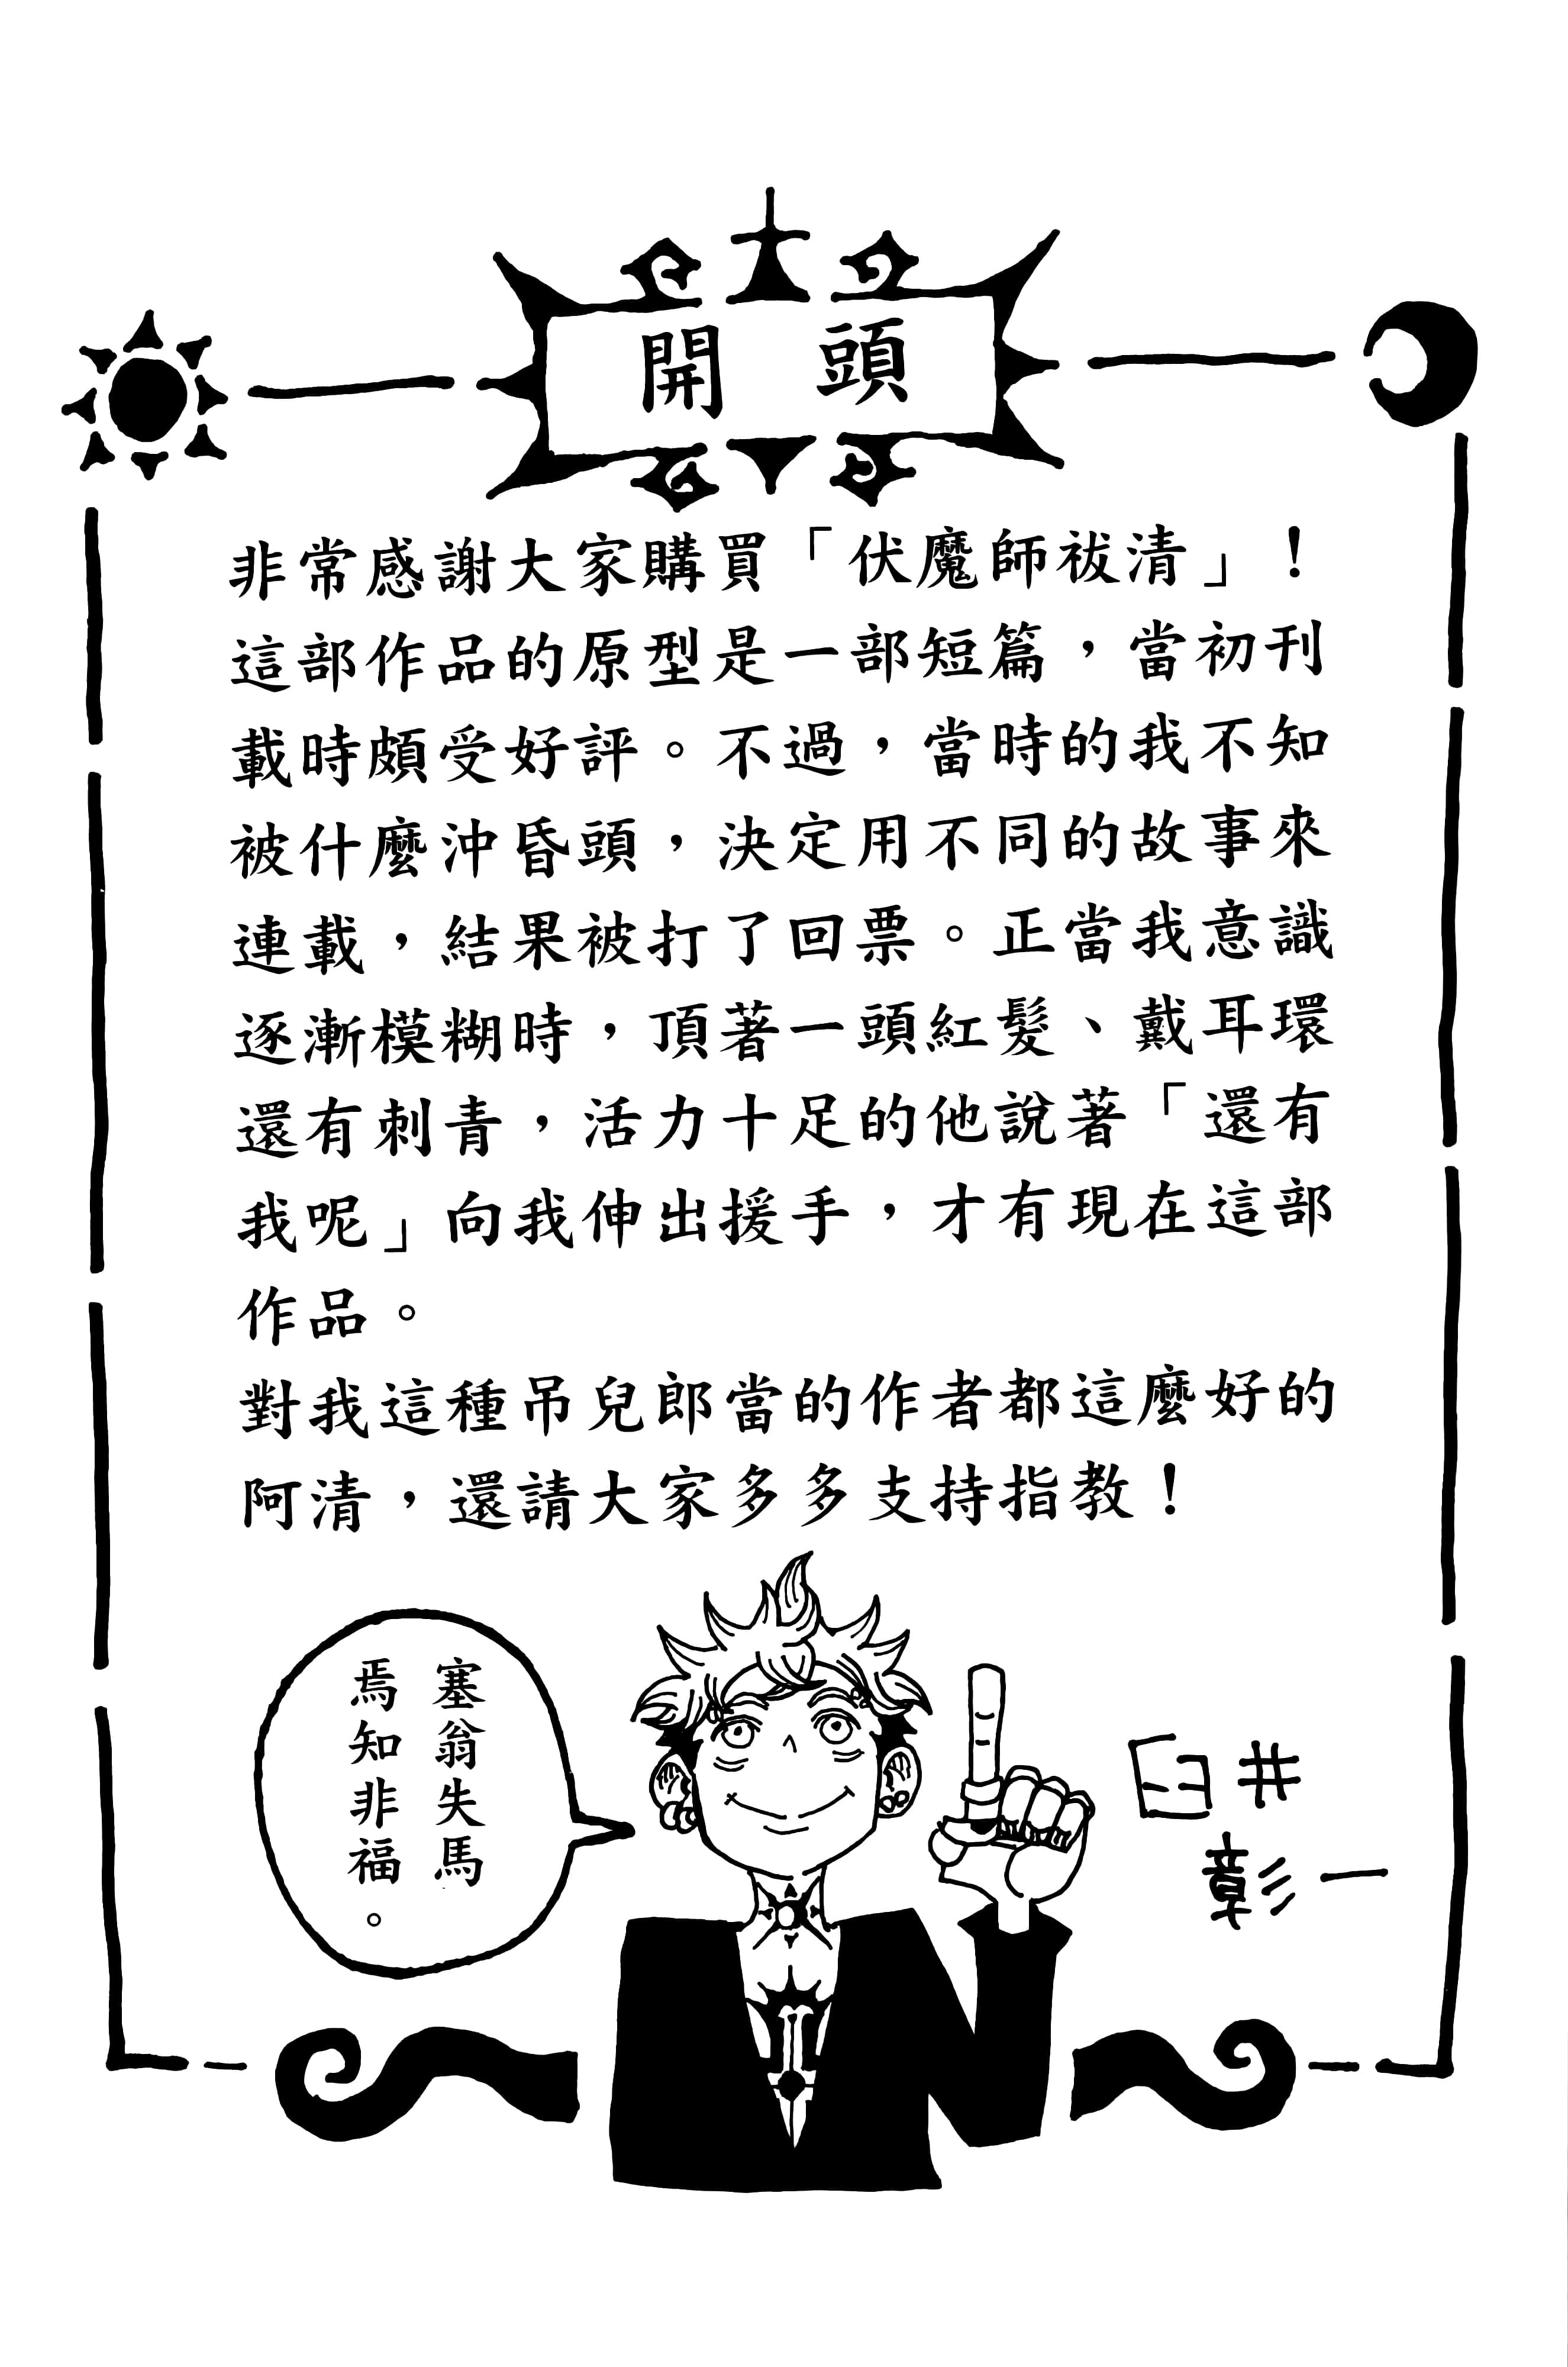 開頭
非常感謝大家購買「伏魔師祓清」！
這部作品的原型是一部短篇，當初刊
載時頗受好評。不過，當時的我不知
被什麼沖昏頭，決定用不同的故事來
連載，結果被打了回票。正當我意識
逐漸模糊時，頂著一頭紅髮、戴耳環
還有刺青，活力十足的他說著「還有
我呢」向我伸出援手，才有現在這部
作品。
對我這種吊兒郎當的作者都這麼好的
阿清，還請大家多多支持指教！
塞翁失馬
焉知非福。
臼井
彰一